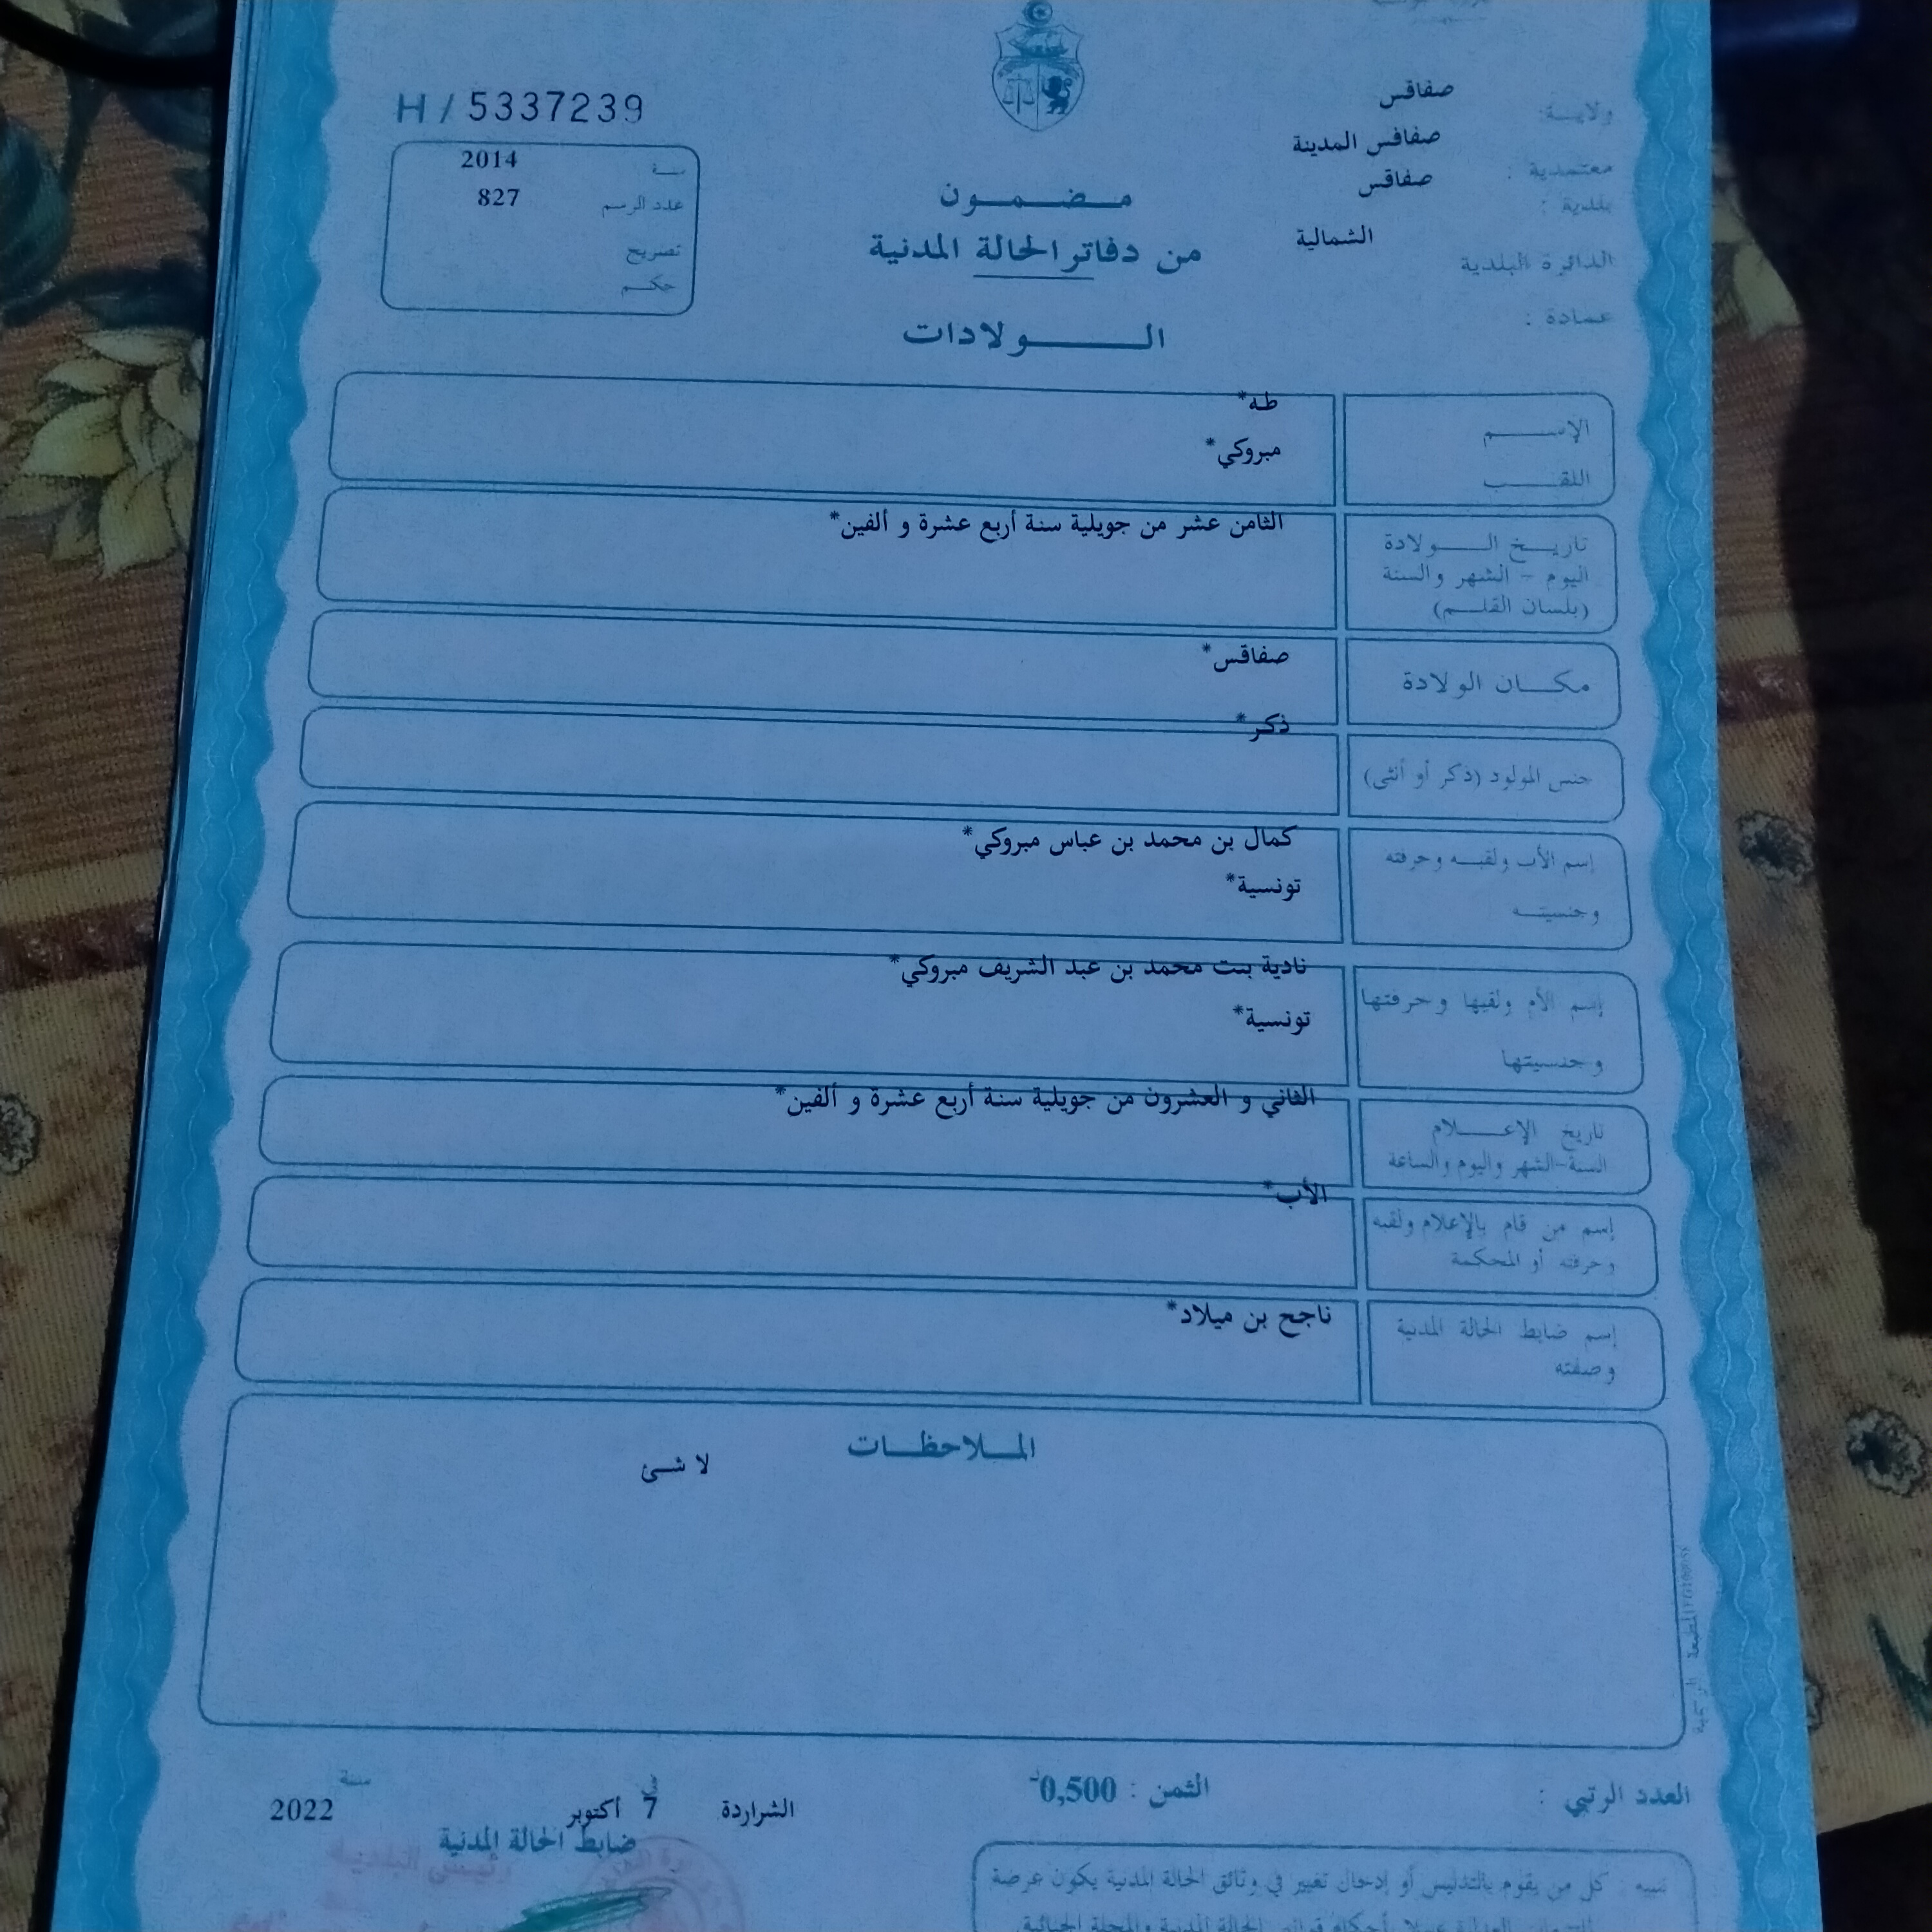 ولايـــة: صفاقس
معتمدية : صفاقس المدينة
بلدية : صفاقس
الدائرة البلدية الشمالية
عمادة :
H / 5337239
سنـة 2014
عدد الرسم 827
تصريح
حكـــم
مـــضـــمـــون
من دفاتر الحالة المدنية
الـــــولادات
الإســــم طه*
اللقــــب مبروكي*
تاريــخ الـــولادة الثامن عشر من جويلية سنة أربع عشرة و ألفين*
اليوم - الشهر والسنة
(بلسان القلــم)
مكـــان الولادة صفاقس*
جنس المولود (ذكر أو أنثى) ذكر*
إسم الأب ولقبــه وحرفته كمال بن محمد بن عباس مبروكي*
وجنسيتــه تونسية*
إسم الأم ولقبها وحرفتها نادية بنت محمد بن عبد الشريف مبروكي*
وجنسيتها تونسية*
تاريخ الإعـــلام الثاني و العشرون من جويلية سنة أربع عشرة و ألفين*
السنة-الشهر واليوم والساعة
إسم من قام بالإعلام ولقبه الأب*
وحرفته أو المحكمة
إسم ضابط الحالة المدنية ناجح بن ميلاد*
وصفته
الملاحظــات
لا شئ
العدد الرتبي :
الثمن : 0,500
الشراردة في 7 أكتوبر سنة 2022
ضابط الحالة المدنية
رئيس البلدية
تنبيه : كل من يقوم بالتدليس أو إدخال تغيير في وثائق الحالة المدنية يكون عرضة